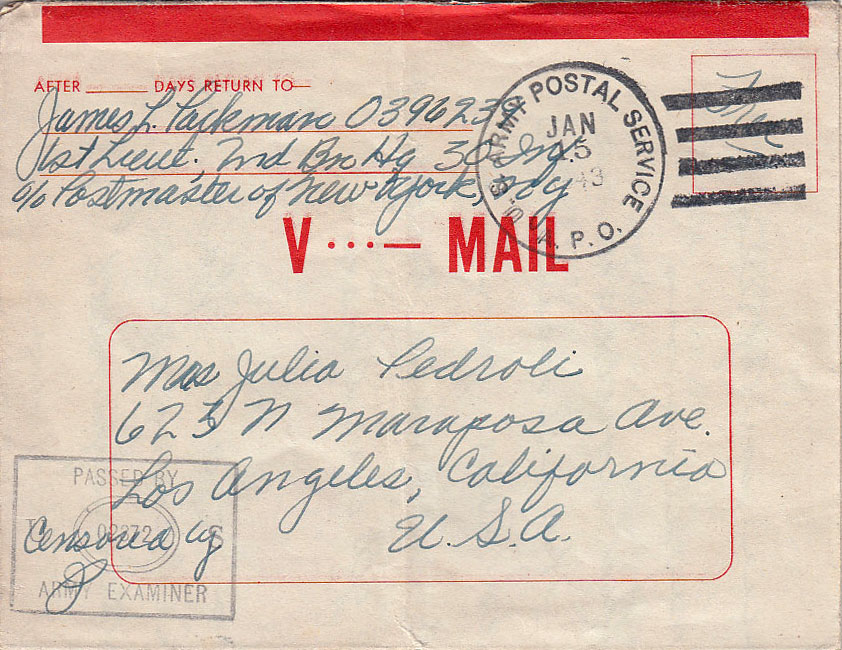 AFTER ______ DAYS RETURN TO—
James L. Packman 039623
1st Lieut., 2nd Bn Hq 30 Inf.
c/o Postmaster of New York, N.Y
Free
U.S. ARMY POSTAL SERVICE
JAN
5
43
A.P.O.
V ···— MAIL
Mrs Julia Pedroli
623 N Maraposa Ave.
Los Angeles, California
U.S.A.
PASSED BY
02272 S
Censored by
ARMY EXAMINER